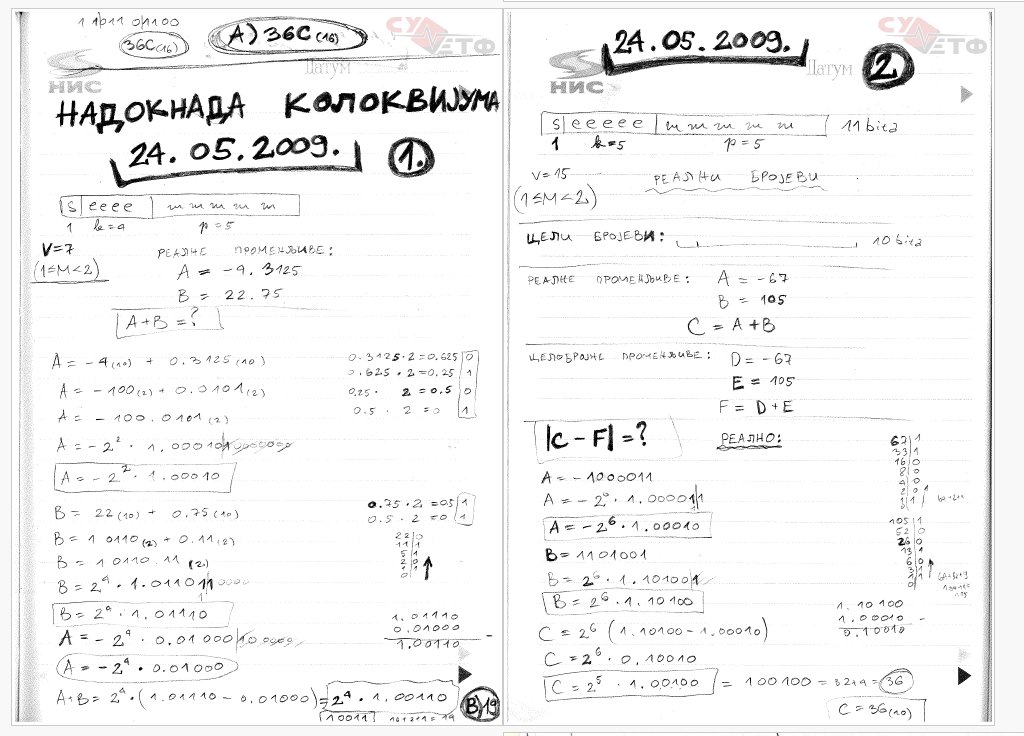 1 1011 01100
36C(16)
A) 36C(16)
СУ ЕТФ
НИС
Датум
НАДОКНАДА КОЛОКВИЈУМА
24. 05. 2009. 1.
s eeee m m m m m
1 k=4 p=5
V=7
(1≤M<2)
РЕАЛНЕ ПРОМЕНЉИВЕ:
A = -4.3125
B = 22.75
A+B = ?
A = -4(10) + 0.3125(10)
A = -100(2) + 0.0101(2)
A = -100.0101(2)
A = -2² · 1.000101
A = -2² · 1.00010
0.3125·2=0.625 0
0.625·2=0.25 1
0.25·2=0.5 0
0.5·2=0 1
B = 22(10) + 0.75(10)
B = 10110(2) + 0.11(2)
B = 10110.11(2)
B = 2⁴ · 1.011011
B = 2⁴ · 1.01110
0.75·2=05 1
0.5·2=0 1
22 0
11 1
5 1
2 0
1 1
0
A = -2⁴ · 0.01000
A = -2⁴ · 0.01000
1.01110
0.01000 -
1.00110
A+B = 2⁴ · (1.01110 - 0.01000) = 2⁴ · 1.00110
10011 16+2+1=19
B) 19
24.05.2009.
СУ ЕТФ
НИС
Датум
2
s eeeee m m m m m 11 bita
1 k=5 p=5
V=15
(1≤M<2)
РЕАЛНИ БРОЈЕВИ
ЦЕЛИ БРОЈЕВИ: 10 bita
РЕАЛНЕ ПРОМЕНЉИВЕ: A = -67
B = 105
C = A+B
ЦЕЛОБРОЈНЕ ПРОМЕНЉИВЕ: D = -67
E = 105
F = D+E
|C-F| = ?
РЕАЛНО:
A = -1000011
A = -2⁶ · 1.000011
A = -2⁶ · 1.00010
B = 1101001
B = 2⁶ · 1.101001
B = 2⁶ · 1.10100
67 1
33 1
16 0
8 0
4 0
2 0
1 1
0
105 1
52 0
26 0
13 1
6 0
3 1
1 1
0
C = 2⁶ (1.10100 - 1.00010)
1.10100
1.00010 -
0.10010
C = 2⁶ · 0.10010
C = 2⁵ · 1.00100 = 100100 = 32+4 = 36
C = 36(10)